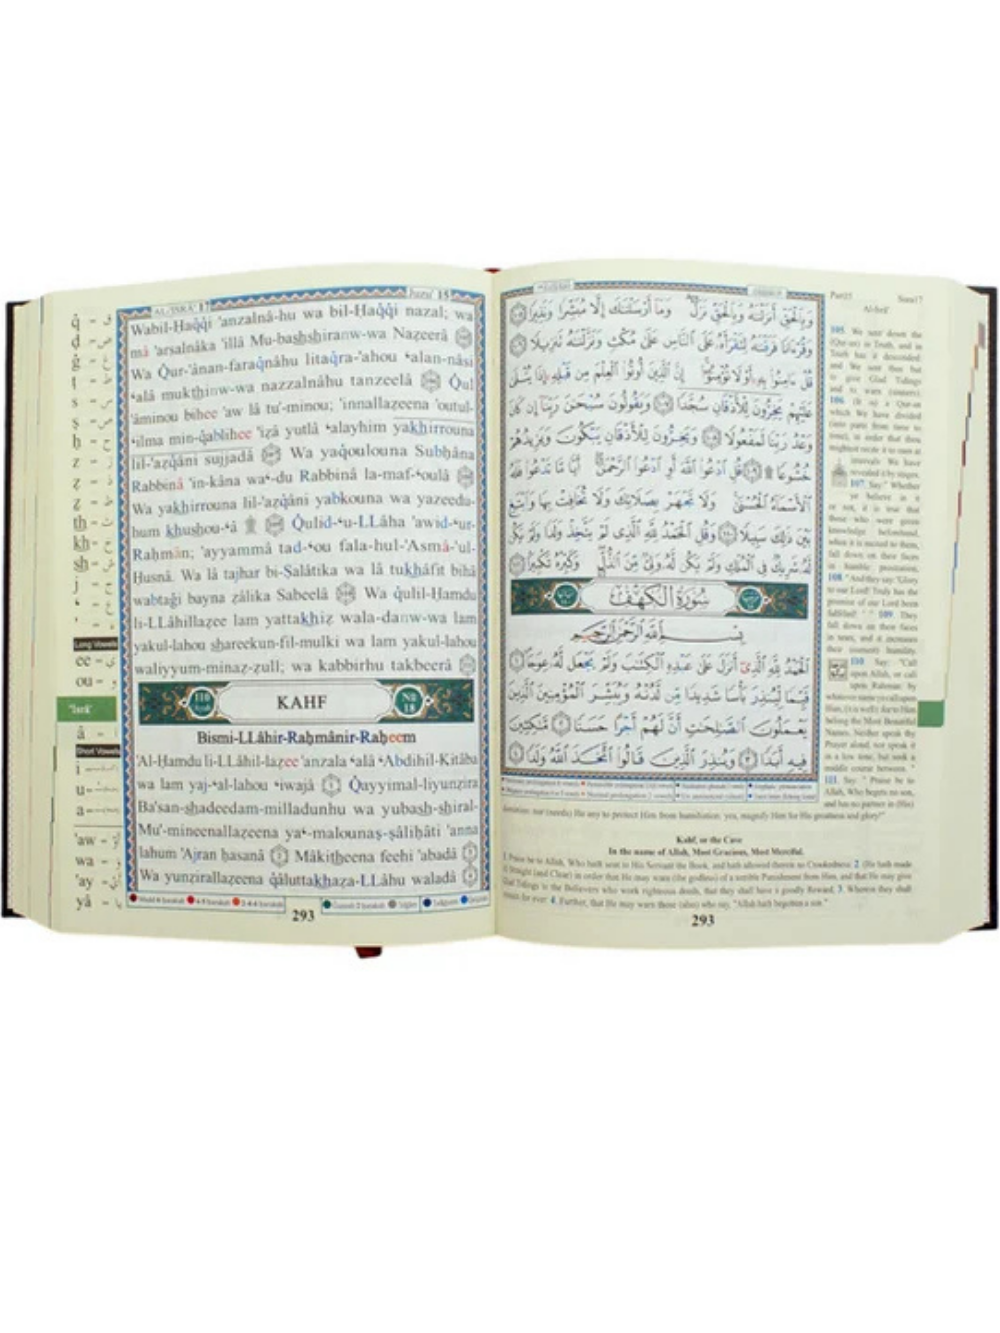 AL-'ISRÂ' 17
Juzu' 15
Wabil-Ḥaq̂q̂i 'anzalnâ-hu wa bil-Ḥaq̂q̂i nazal; wa
mâ 'arsalnâka 'illâ Mu-bashshiranw-wa Naẓeerâ
Wa Q̂ur-'ânan-faraq̂nâhu litaq̂ra-'ahou ʻalan-nâsi
ʻalâ mukthinw-wa nazzalnâhu tanzeelâ Q̂ul
'âminou bihee 'aw lâ tu'-minou; 'innallaẓeena 'outul-
ʻilma min-q̂ablihee 'iẓâ yutlâ ʻalayhim yakhirrouna
lil-'aẓq̂âni sujjadâ Wa yaq̂oulouna Subḥâna
Rabbinâ 'in-kâna waʻ-du Rabbinâ la-maf-ʻoulâ
Wa yakhirrouna lil-'aẓq̂âni yabkouna wa yazeedu-
hum khushou-ʻâ Q̂ulid-ʻu-LLâha 'awid-ʻur-
Raḥmân; 'ayyammâ tad-ʻou fala-hul-'Asmâ-'ul-
Ḥusnâ. Wa lâ tajhar bi-Ṣalâtika wa lâ tukhâfit bihâ
wabtaĝi bayna ẓâlika Sabeelâ Wa q̂ulil-Ḥamdu
li-LLâhillaẓee lam yattakhiẓ wala-danw-wa lam
yakul-lahou shareekun-fil-mulki wa lam yakul-lahou
waliyyum-minaẓ-ẓull; wa kabbirhu takbeerâ
110
Ayah
KAHF
No
18
Bismi-LLâhir-Raḥmânir-Raḥeem
'Al-Ḥamdu li-LLâhil-laẓee 'anzala ʻalâ ʻAbdihil-Kitâba
wa lam yaj-ʻal-lahou ʻiwajâ 1 Q̂ayyimal-liyunẓira
Ba'san-shadeedam-milladunhu wa yubash-shiral-
Mu'-mineenallaẓeena yaʻ-malounaṣ-ṣâliḥâti 'anna
lahum 'Ajran ḥasanâ 2 Mâkitheena feehi 'abadâ 3
Wa yunẓirallaẓeena q̂âluttakhaẓa-LLâhu waladâ 4
293
q̂ - ق
ḍ - ض
ĝ - غ
ṭ - ط
s - س
ṣ - ص
ḥ - ح
z - ز
ẓ - ذ
ẓ - ظ
th - ث
kh - خ
sh - ش
j - ج
ʻ - ع
' - ء
Long Vowels
ee - ي
ou - و
'Isrâ'
â - ا
Short Vowels
i
u
a
'aw - أو
wa - و
'ay - أي
yâ - يا
وَبِالْحَقِّ أَنزَلْنَاهُ وَبِالْحَقِّ نَزَلَ وَمَا أَرْسَلْنَاكَ إِلَّا مُبَشِّرًا وَنَذِيرًا
وَقُرْءَانًا فَرَقْنَاهُ لِتَقْرَأَهُ عَلَى النَّاسِ عَلَىٰ مُكْثٍ وَنَزَّلْنَاهُ تَنزِيلًا
قُلْ ءَامِنُوا بِهِ أَوْ لَا تُؤْمِنُوا إِنَّ الَّذِينَ أُوتُوا الْعِلْمَ مِن قَبْلِهِ إِذَا يُتْلَىٰ
عَلَيْهِمْ يَخِرُّونَ لِلْأَذْقَانِ سُجَّدًا وَيَقُولُونَ سُبْحَٰنَ رَبِّنَا إِن كَانَ
وَعْدُ رَبِّنَا لَمَفْعُولًا وَيَخِرُّونَ لِلْأَذْقَانِ يَبْكُونَ وَيَزِيدُهُمْ
خُشُوعًا قُلِ ادْعُوا اللَّهَ أَوِ ادْعُوا الرَّحْمَٰنَ أَيًّا مَّا تَدْعُوا فَلَهُ
الْأَسْمَاءُ الْحُسْنَىٰ وَلَا تَجْهَرْ بِصَلَاتِكَ وَلَا تُخَافِتْ بِهَا وَابْتَغِ
بَيْنَ ذَٰلِكَ سَبِيلًا وَقُلِ الْحَمْدُ لِلَّهِ الَّذِي لَمْ يَتَّخِذْ وَلَدًا وَلَمْ يَكُن
لَّهُ شَرِيكٌ فِي الْمُلْكِ وَلَمْ يَكُن لَّهُ وَلِيٌّ مِّنَ الذُّلِّ وَكَبِّرْهُ تَكْبِيرًا
سُورَةُ الْكَهْفِ
بِسْمِ اللَّهِ الرَّحْمَٰنِ الرَّحِيمِ
الْحَمْدُ لِلَّهِ الَّذِي أَنزَلَ عَلَىٰ عَبْدِهِ الْكِتَٰبَ وَلَمْ يَجْعَل لَّهُ عِوَجًا
قَيِّمًا لِّيُنذِرَ بَأْسًا شَدِيدًا مِّن لَّدُنْهُ وَيُبَشِّرَ الْمُؤْمِنِينَ الَّذِينَ
يَعْمَلُونَ الصَّٰلِحَٰتِ أَنَّ لَهُمْ أَجْرًا حَسَنًا مَّٰكِثِينَ
فِيهِ أَبَدًا وَيُنذِرَ الَّذِينَ قَالُوا اتَّخَذَ اللَّهُ وَلَدًا
Part15 Sura17
Al-Isrâ'
105. We sent down the
(Qur-an) in Truth, and in
Truth has it descended:
and We sent thee but
to give Glad Tidings
and to warn (sinners).
106. (It is) a Qur-an
which We have divided
(into parts from time to
time), in order that thou
mightest recite it to men at
intervals: We have
revealed it by stages.
107. Say: "Whether
ye believe in it
or not, it is true that
those who were given
knowledge beforehand,
when it is recited to them,
fall down on their faces
in humble prostration,
108. "And they say: 'Glory
to our Lord! Truly has the
promise of our Lord been
fulfilled!' " 109. They
fall down on their faces
in tears, and it increases
their (earnest) humility.
110. Say: "Call
upon Allah, or call
upon Rahman: by
whatever name ye call upon
Him, (it is well): for to Him
belong the Most Beautiful
Names. Neither speak thy
Prayer aloud, nor speak it
in a low tone, but seek a
middle course between."
111. Say: "Praise be to
Allah, Who begets no son,
and has no partner in (His)
dominion: nor (needs) He any to protect Him from humiliation: yea, magnify Him for His greatness and glory!"
Kahf, or the Cave
In the name of Allah, Most Gracious, Most Merciful.
1. Praise be to Allah, Who hath sent to His Servant the Book, and hath allowed therein no Crookedness: 2. (He hath made
it) Straight (and Clear) in order that He may warn (the godless) of a terrible Punishment from Him, and that He may give
Glad Tidings to the Believers who work righteous deeds, that they shall have a goodly Reward, 3. Wherein they shall
remain for ever: 4. Further, that He may warn those (also) who say, "Allah hath begotten a son."
293